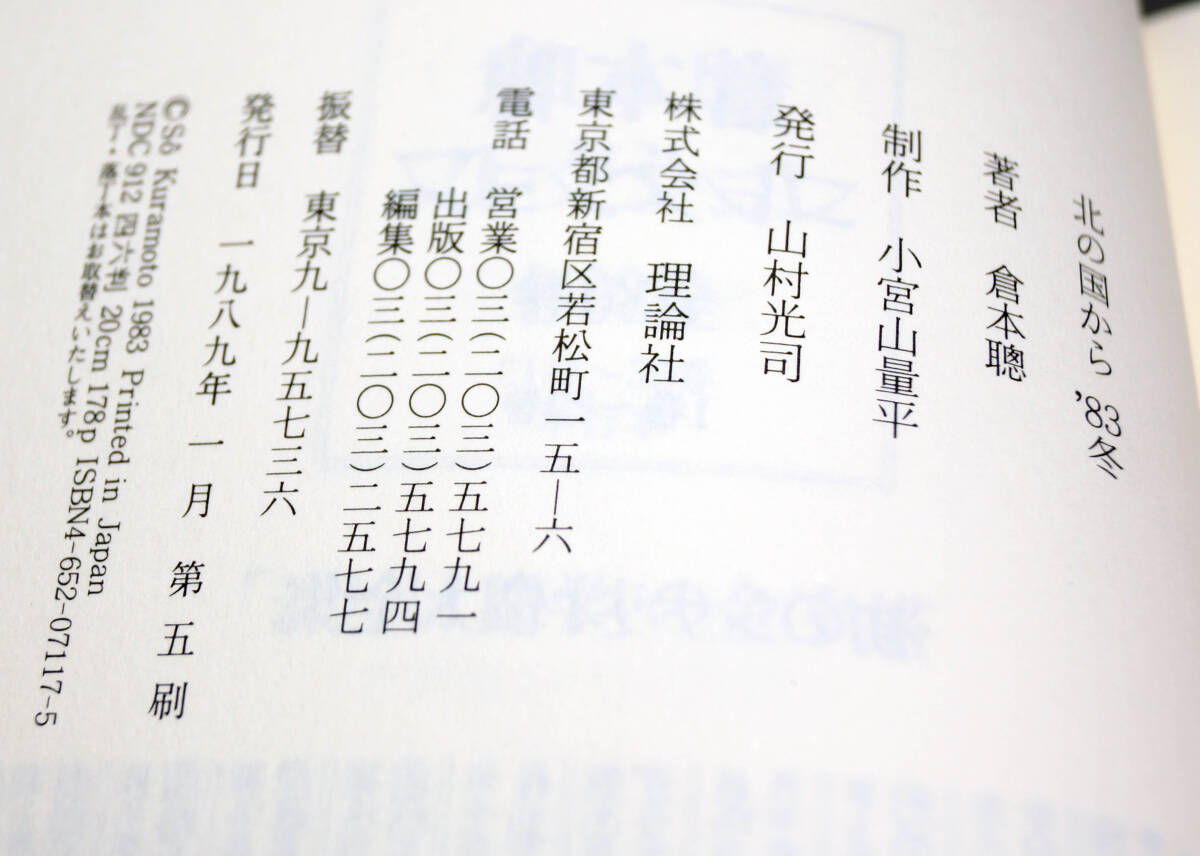 北の国から '83冬
著者 倉本聰
制作 小宮山量平
発行 山村光司
株式会社 理論社
東京都新宿区若松町一五―六
電話 営業〇三(二〇三)五七九一
出版〇三(二〇三)五七九四
編集〇三(二〇三)二五七七
振替 東京九―九五七三六
発行日 一九八九年 一月 第五刷
©Sô Kuramoto 1983 Printed in Japan
NDC 912 四六判 20cm 178p ISBN4-652-07117-5
乱丁・落丁本はお取替えいたします。